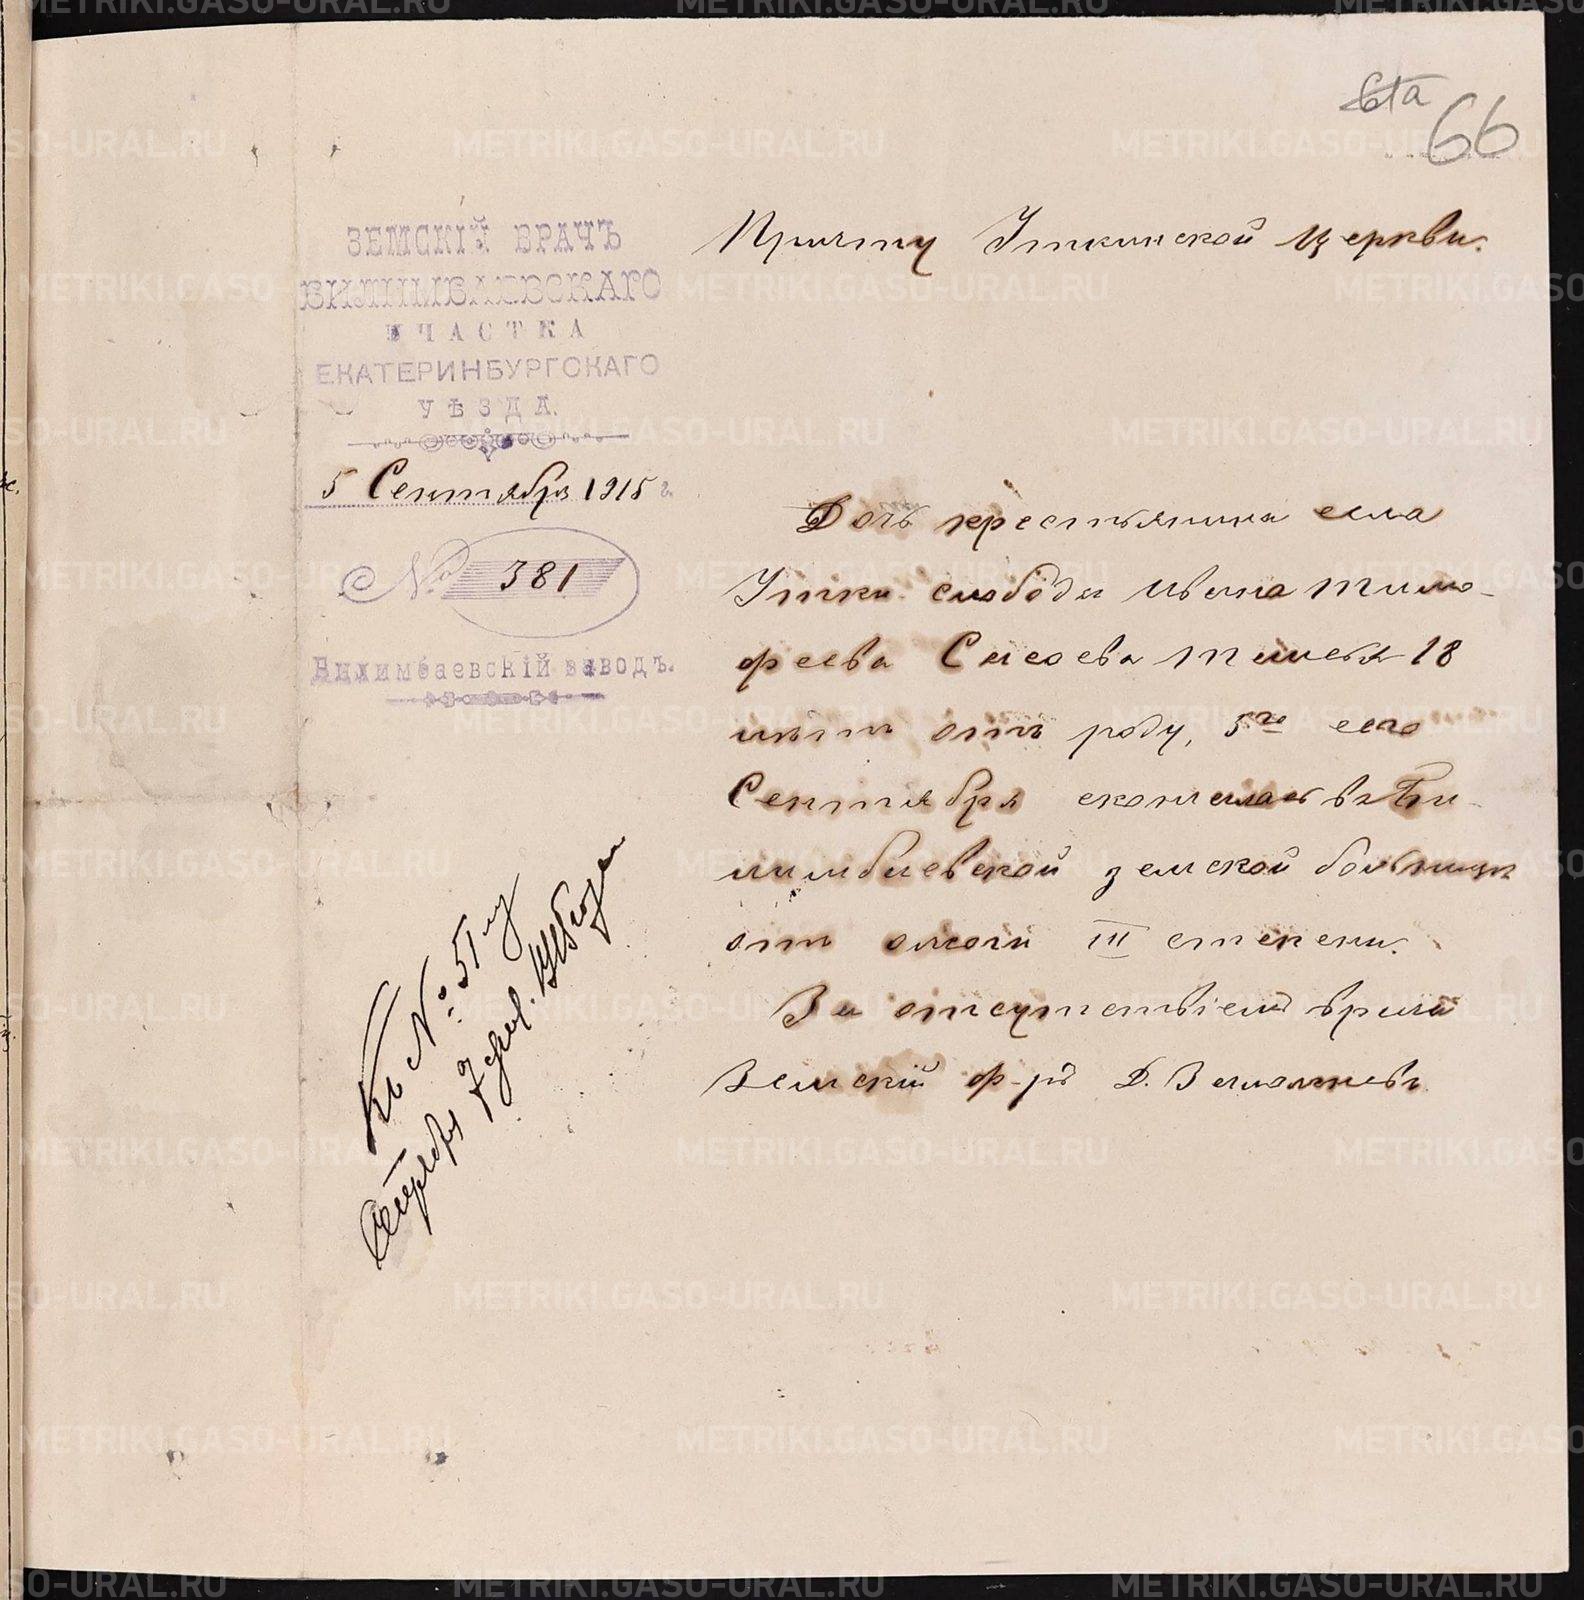 66
ЗЕМСКІЙ ВРАЧЪ
БИЛИМБАЕВСКАГО
УЧАСТКА
ЕКАТЕРИНБУРГСКАГО
УѢЗДА.
5 Сентября 1915 г.
№ 381
Билимбаевскій заводъ.
Причту Уткинской церкви.
Дочь крестьянина села
Утки слободы Ивана Тимо-
феева Сысоева 18
лѣтъ отъ роду, 5го сего
Сентября скончалась въ Би-
лимбаевской земской больницѣ
отъ ожоги III степени.
За отсутствіемъ врача
Земскій ф-ръ Д.
Къ № 51му
7
METRIKI.GASO-URAL.RU